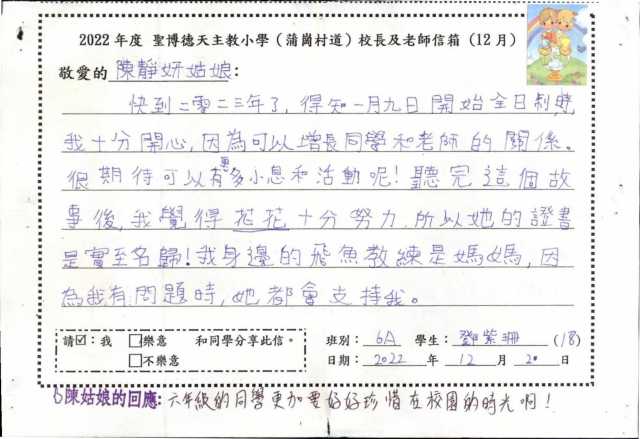 2022年度 聖博德天主教小學（蒲崗村道）校長及老師信箱（12月）
敬愛的 陳靜妍姑娘：
快到二零二三年了，得知一月九日開始全日制時，
我十分開心，因為可以增長同學和老師的關係。
很期待可以有更多小息和活動呢！聽完這個故
事後，我覺得花花十分努力，所以她的證書
是實至名歸！我身邊的飛魚教練是媽媽，因
為我有問題時，她都會支持我。
請☑：我 □樂意 和同學分享此信。 班別： 6A 學生： 鄧紫珊 (18)
□不樂意 日期： 2022 年 12 月 20 日
陳姑娘的回應：六年級的同學更加要好好珍惜在校園的時光啊！